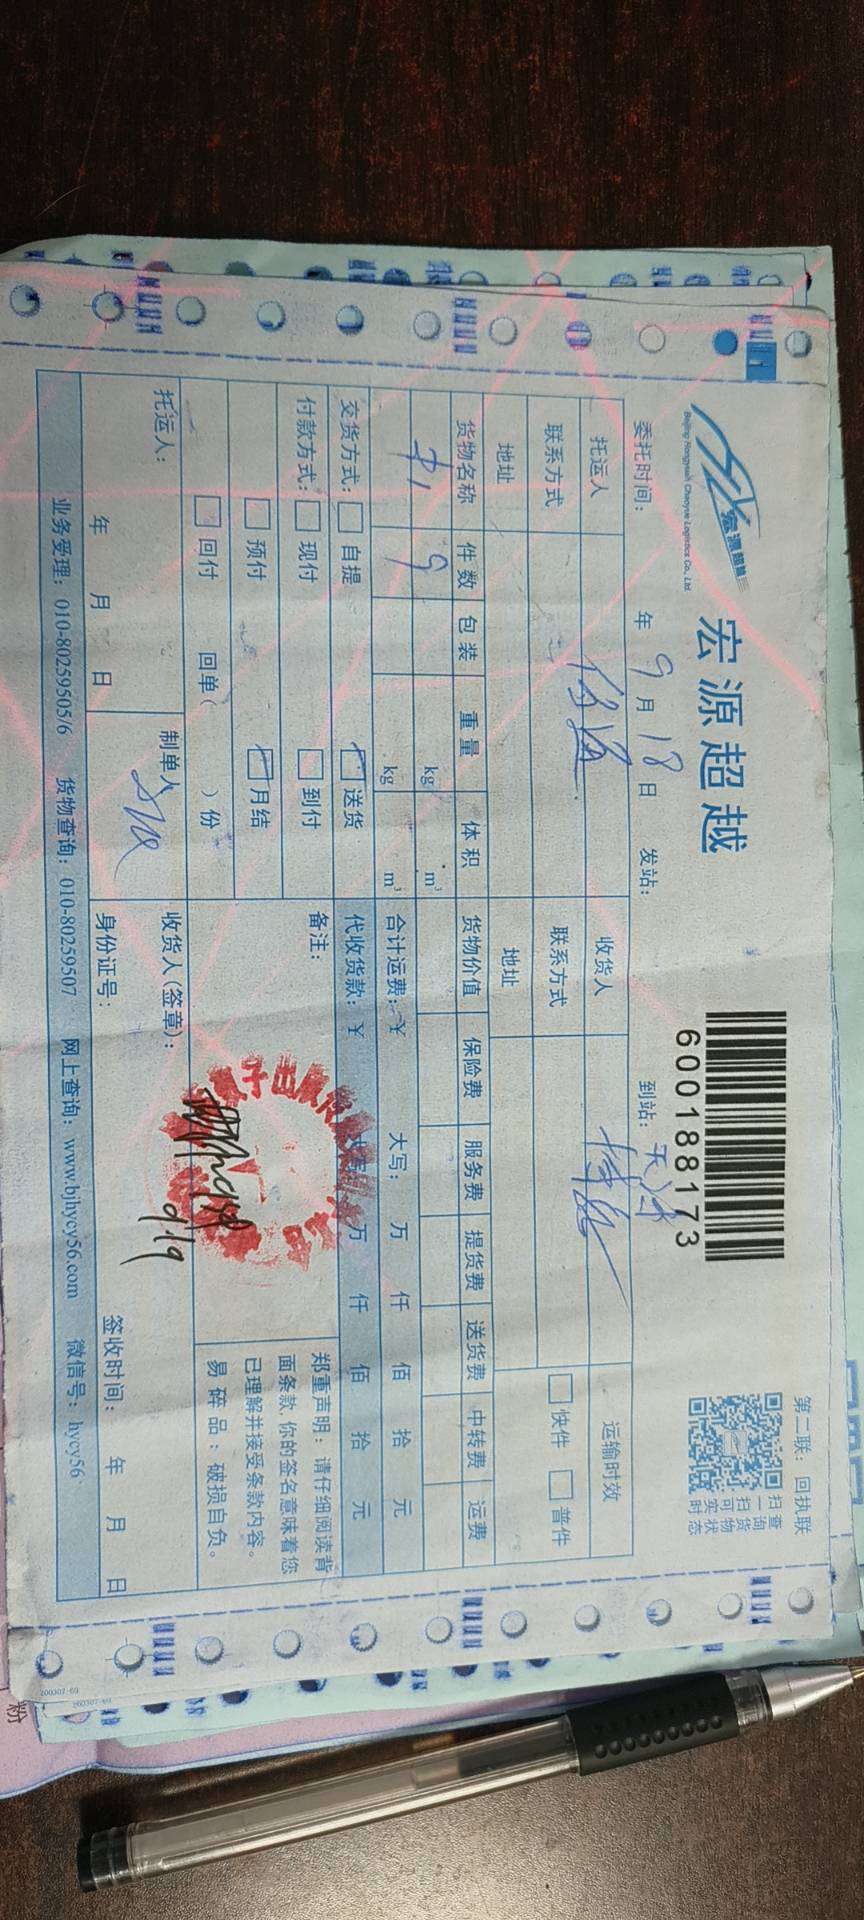 宏源超越
Beijing Hongyuan Chaoyue Logistics Co., Ltd.
宏源超越
600188173
第二联：回执联
扫一扫可实时
查询货物状态
委托时间： 年 9 月 18 日 发站： 到站：天津
托运人 收货人 运输时效
联系方式 联系方式 快件 普件
地址 地址
货物名称 件数 包装 重量 体积 货物价值 保险费 服务费 提货费 送货费 中转费 运费
9 kg m³
kg m³ 合计运费：¥ 大写： 万 仟 佰 拾 元
交货方式： 自提 送货 代收货款：¥ 大写： 万 仟 佰 拾 元
付款方式： 现付 到付 备注：
预付 月结
回付 回单（ ）份
郑重声明：请仔细阅读背
面条款，你的签名意味着您
已理解并接受条款内容。
易碎品：破损自负。
托运人： 制单人 收货人(签章)：
9/9
年 月 日 身份证号： 签收时间： 年 月 日
业务受理：010-80259505/6 货物查询：010-80259507 网上查询：www.bjhycy56.com 微信号：hycy56